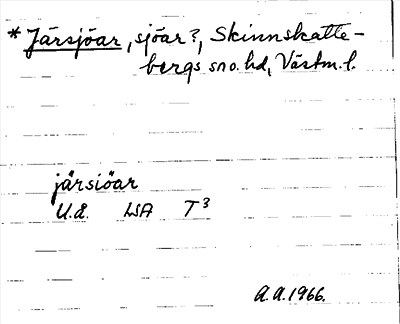 * Järsjöar, sjöar?, Skinnskatte-
bergs sn o. hd, Västm. l.
järsiöar
U.å. LSA T³
A.A. 1966.